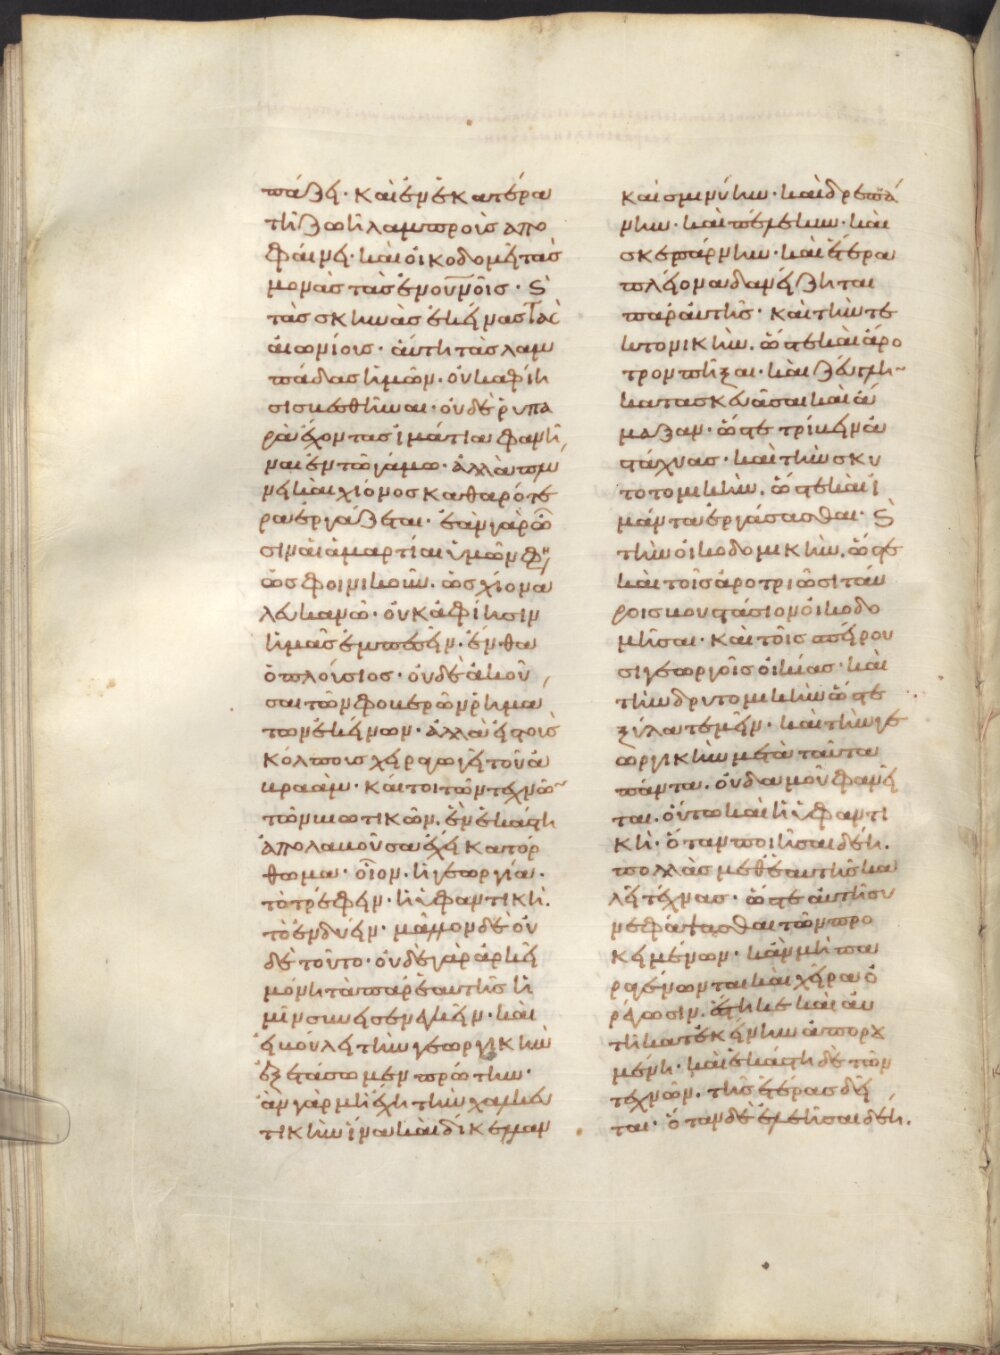 πάζει· καὶ ἐν ἑκατέρα
τῇ ζωῇ λαμπροὺς ἀπο
φαίνει· καὶ οἰκοδομεῖ τὰς
μονὰς τὰς ἐν οὐνοῖς· καὶ
τὰς σκηνὰς ἐκείνας τὰς
αἰωνίοις· αὕτη τὰς λαμ
πάδας ἡμῶν· οὐκ ἀφίη
σι σβεσθῆναι· οὐδὲ ῥυπα
ρὰ ἔχοντας ἱμάτια φανῆ
ναι ἐν τῷ γάμω· ἀλλὰ πλύ
νει καὶ χιόνος καθαρότε
ρα ἐργάζεται· ἐὰν γὰρ ὦ
σιν αἱ ἁμαρτίαι ὑμῶν φη
ὡς φοινικοῦν· ὡς χιόνα
λευκανῶ· οὐκ ἀφίησιν
ἡμᾶς ἐμπεσεῖν· ἔνθα
ὁ πλούσιος· οὐδὲ ἀκοῦ
σαι τῶν φοβερῶν ῥημά
των ἐκείνων· ἀλλὰ εἰς τοὺς
κόλπους χειραγωγεῖ τοῦ ἁ
βραάμ· καίτοι τῶν τεχνῶ
τῶν βιωτικῶν· ἓν ἑκάστη
ἀπολαβοῦσα ἔχει κατόρ
θωμα· οἷον· ἡ γεωργία·
τὸ τρέφειν· ἡ ὑφαντικὴ·
τὸ ἐνδύειν· μᾶλλον δὲ οὐ
δὲ τοῦτο· οὐδὲ γὰρ ἀρκεῖ
μόνη τὰ παρ' ἑαυτῆς ἡ
μῖν συνεισενεγκεῖν· καὶ
εἰ βούλει τὴν γεωργικὴν
ἐξετάσωμεν πρώτην·
ἂν γὰρ μὴ ἔχη τὴν χαλκευ
τικὴν ἵνα καὶ δίκελλαν
καὶ σμινύην· καὶ δρεπά
νην· καὶ πέλεκυν· καὶ
σκεπάρνην· καὶ ἕτερα
πλείονα δανείζηται
παρ' αὐτῆς· καὶ τὴν τε
κτονικὴν· ὥστε καὶ ἄρο
τρον πῆξαι· καὶ ζεύγλη
κατασκευάσαι καὶ ἅ
μαξαν· ὥστε τρίβειν ἀ
στάχυας· καὶ τὴν σκυ
τοτομικὴν· ὥστε καὶ ἱ
μάντα ἐργάσασθαι· καὶ
τὴν οἰκοδομικὴν· ὥστε
καὶ τοῖς ἀροτριῶσι ταύ
ροις βουστάσιον οἰκοδο
μῆσαι· καὶ τοῖς σπείρου
σι γεωργοῖς οἰκίας· καὶ
τὴν δρυτομικὴν ὥστε
ξύλα τεμεῖν· καὶ τὴν γε
ωργικὴν μετὰ ταῦτα
πάντα· οὐδαμοῦ φανεῖ
ται· οὕτω καὶ ἡ ὑφαντι
κὴ· ὅταν ποιῆσαι δέη·
πολλὰς μεθ' ἑαυτῆς κα
λεῖ τέχνας· ὥστε αὐτῆς συ
νεφάψασθαι τῶν προ
κειμένων· κἂν μὴ πα
ραγένωνται καὶ χεῖρα ὀ
ρέξωσιν· ἕστηκε καὶ αὐ
τὴ κατ' ἐκείνην ἀπορου
μένη· καὶ ἑκάστη δὲ τῶν
τεχνῶν· τῆς ἑτέρας δεῖ
ται· ὅταν δὲ ἐλεῆσαι δέη·